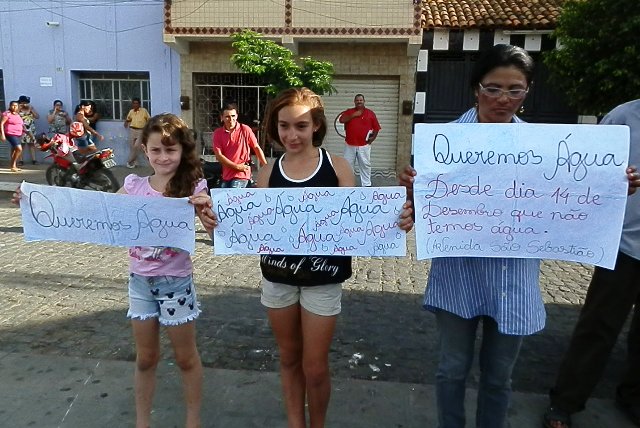 Queremos Água
Água Água Água
Água Água Água Água
Água Água Água
Água Água Água
Winds of Glory
Queremos Água
Desde dia 14 de
Dezembro que não
temos água.
(Avenida São Sebastião)